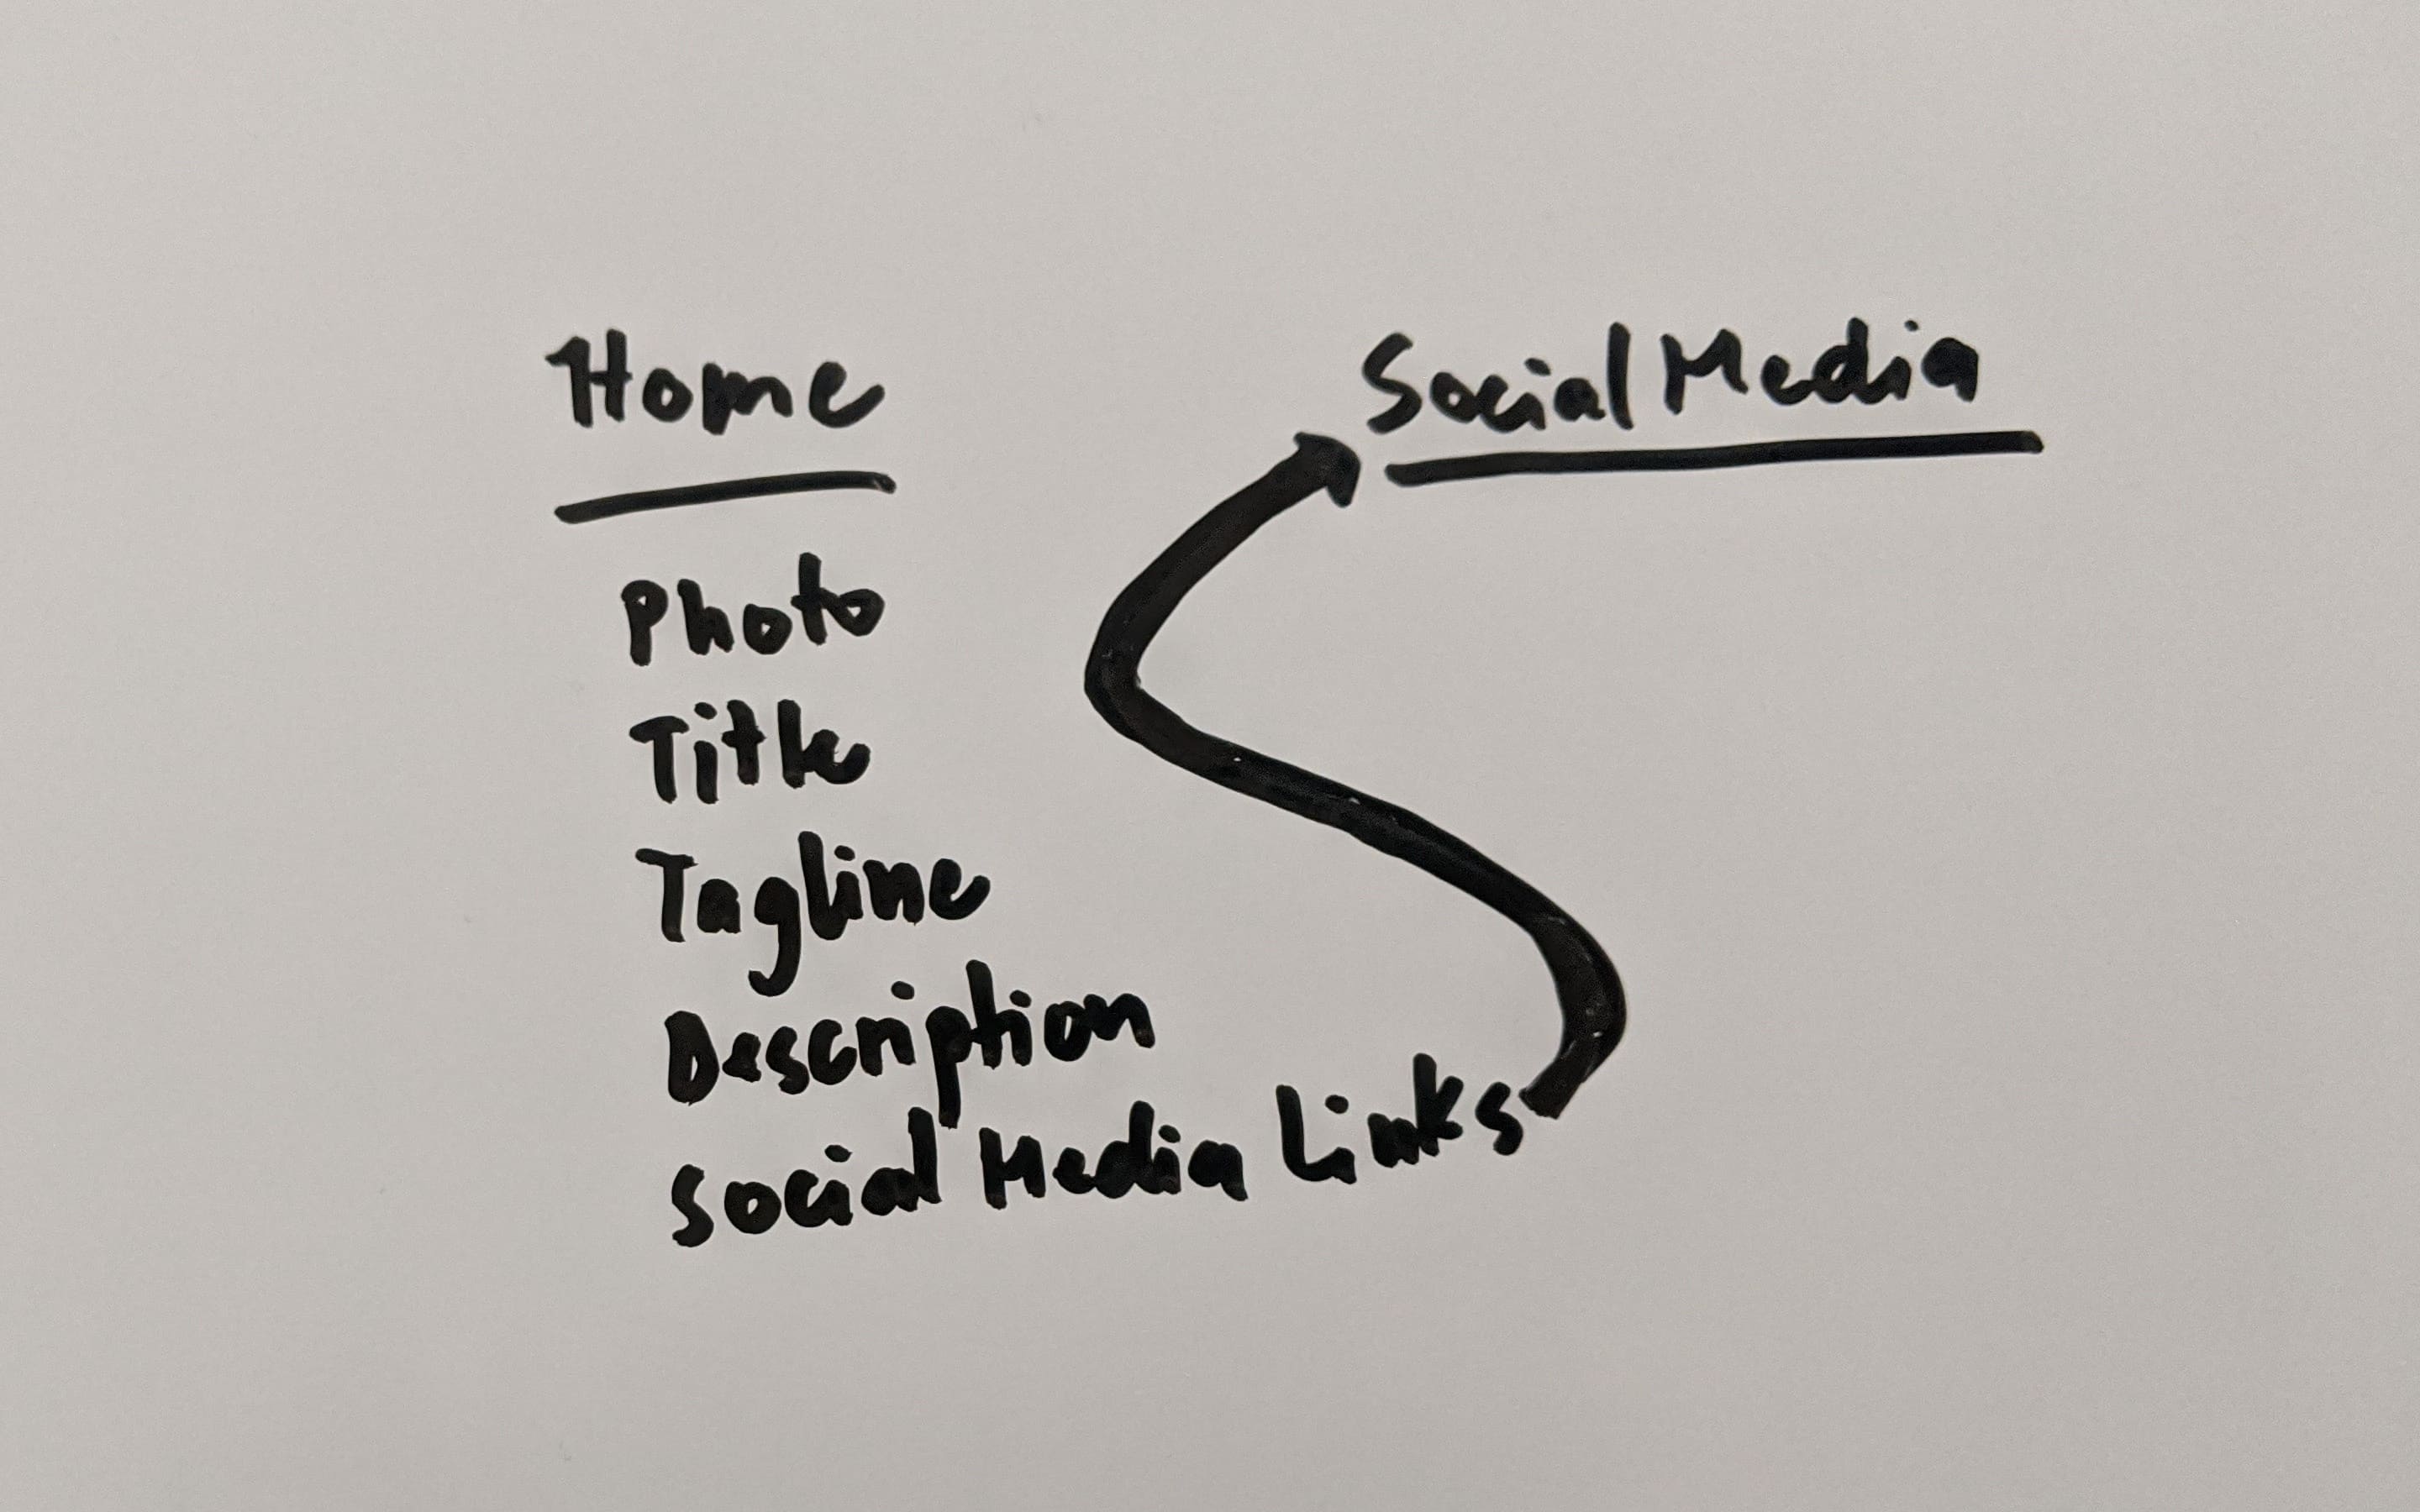 Home
Photo
Title
Tagline
Description
Social Media Links
Social Media